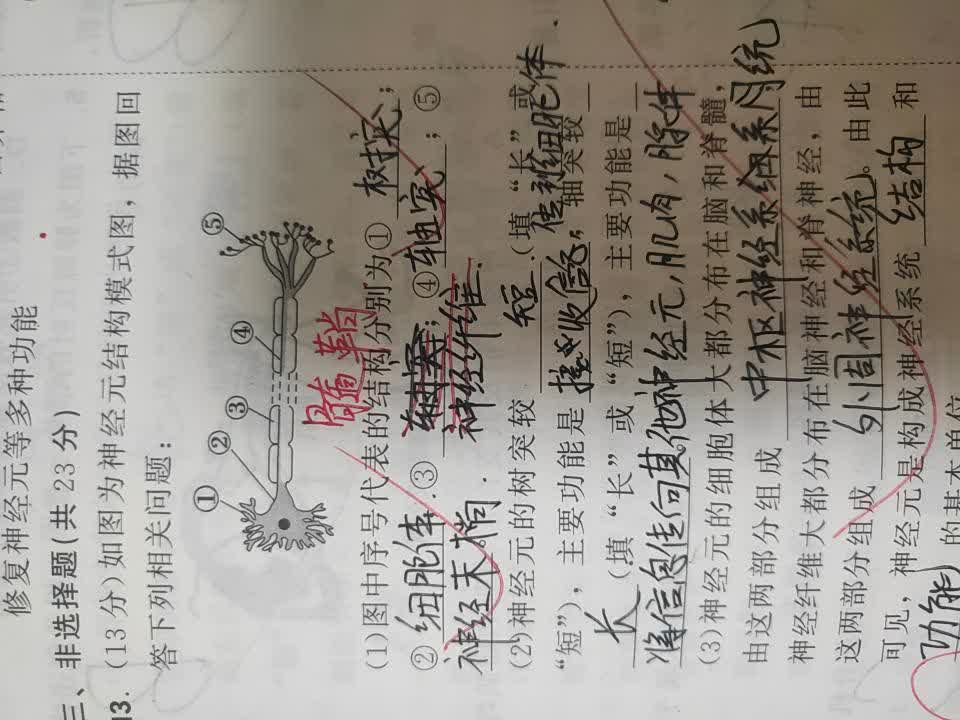 修复神经元等多种功能
三、非选择题(共23分)
13.(13分)如图为神经元结构模式图,据图回
答下列相关问题:
① ② ③ ④ ⑤
髓鞘
(1)图中序号代表的结构分别为①树突;
②细胞体;③神经纤维;④轴突;⑤
神经末梢.
(2)神经元的树突较短.(填“长”或
“短”),主要功能是接收信息,传到细胞体 轴突较
长(填“长”或“短”),主要功能是
将信息传向其他神经元,肌肉,腺体
(3)神经元的细胞体大都分布在脑和脊髓,
由这两部分组成中枢神经系统
神经纤维大都分布在脑神经和脊神经,由
这两部分组成外周神经系统。由此
可见,神经元是构成神经系统结构和
功能的基本单位